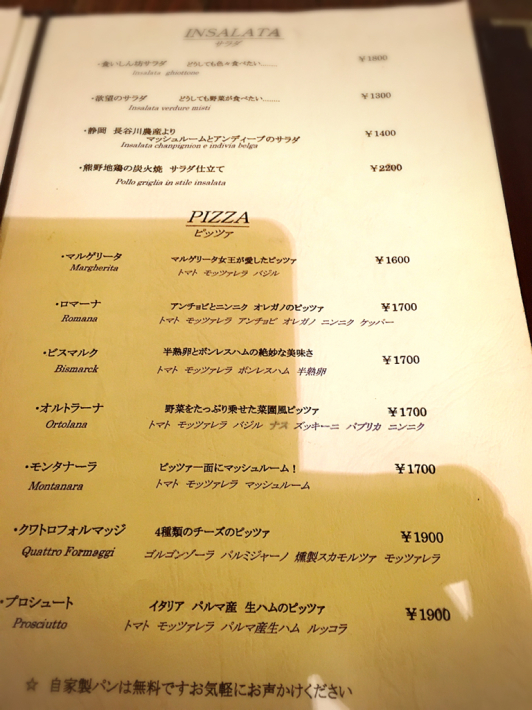 INSALATA
サラダ
・食いしん坊サラダ どうしても色々食べたい…… ￥1800
Insalata ghiottone
・欲望のサラダ どうしても野菜が食べたい…… ￥1300
Insalata verdure misti
・静岡 長谷川農産より
マッシュルームとアンディーブのサラダ ￥1400
Insalata chanpignion e indivia belga
・熊野地鶏の炭火焼 サラダ仕立て ￥2200
Pollo griglia in stile insalata
PIZZA
ピッツァ
・マルゲリータ マルゲリータ女王が愛したピッツァ ￥1600
Margherita トマト モッツァレラ バジル
・ロマーナ アンチョビとニンニク オレガノのピッツァ ￥1700
Romana トマト モッツァレラ アンチョビ オレガノ ニンニク ケッパー
・ビスマルク 半熟卵とボンレスハムの絶妙な美味さ ￥1700
Bismarck トマト モッツァレラ ボンレスハム 半熟卵
・オルトラーナ 野菜をたっぷり乗せた菜園風ピッツァ ￥1700
Ortolana トマト モッツァレラ バジル ナス ズッキーニ パプリカ ニンニク
・モンタナーラ ピッツァ一面にマッシュルーム！ ￥1700
Montanara トマト モッツァレラ マッシュルーム
・クワトロフォルマッジ 4種類のチーズのピッツァ ￥1900
Quattro Formaggi ゴルゴンゾーラ パルミジャーノ 燻製スカモルツァ モッツァレラ
・プロシュート イタリア パルマ産 生ハムのピッツァ ￥1900
Prosciutto トマト モッツァレラ パルマ産生ハム ルッコラ
☆ 自家製パンは無料ですお気軽にお声かけください